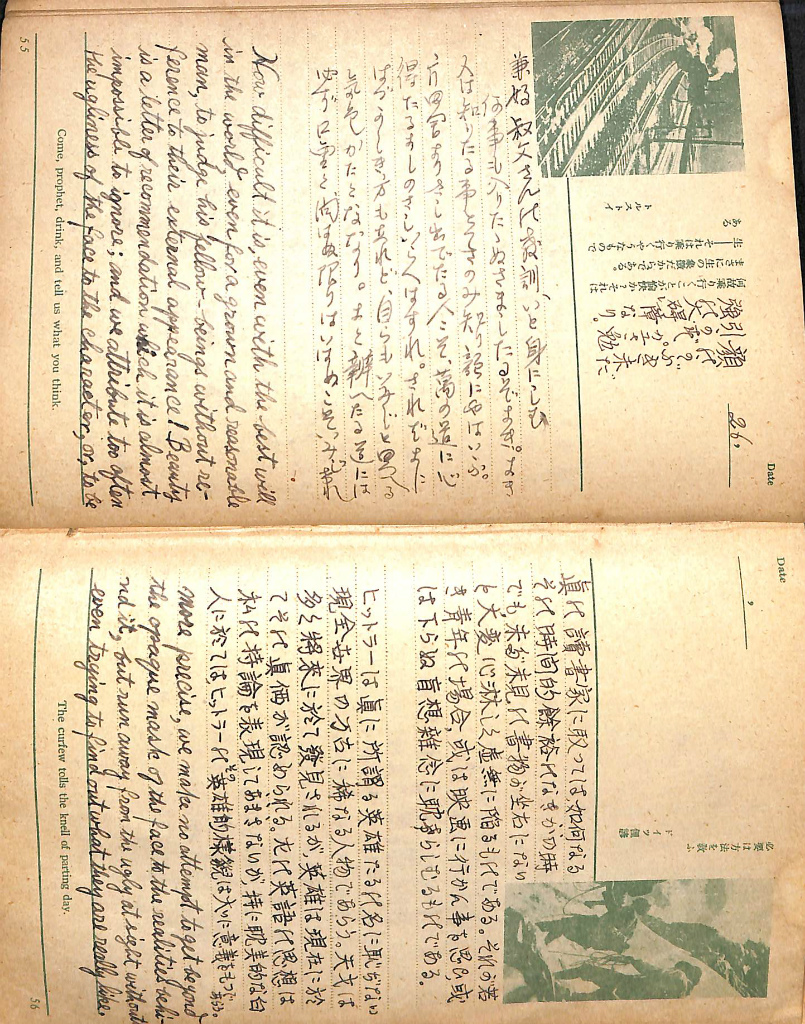 Date
26,
何故 乗り行くことが愉快か?それは
まさに生の象徴だからである。
生―それは乗り行くやうなもので
ある
トルストイ
兼好叔父さんの教訓、っと身にしむ
何事も入りたゝぬさましたるぞよき。よき
人は知りたる事とてさのみ知り顔にやはいふ。
片田舎よりさし出でたる人こそ萬の道に心
得たるよしのさしいらへはすれ。されば世に
はづかしき方もあれど、自らもいみじと思へる
気色かたくななり。よく辨へたる道には
必ず口重く、問はぬ限りはいはぬこそ
How difficult it is, even with the best will
in the world, even for a grown and reasonable
man, to judge his fellow-beings without re-
ference to their external appearance! Beauty
is a letter of recommendation which it is almost
impossible to ignore; and we attribute too often
the ugliness of the face to the character, or, to be
Come, prophet, drink, and tell us what you think.
55
Date
,
必要は方法を敎ふ
ドイツ俚諺
眞の讀書家に取っては如何なる
その時間的餘裕のなきかの時
でも未だ未見の書物が坐右にない
と大変心淋しき虚無に陥るものである。それが若
き青年の場合、或は映画に行かん事を思ひ或
は下らぬ盲想雑念に耽らしむるものである。
ヒットラーは眞に所謂る英雄たるの名に恥ぢない
現今世界の万古に稀なる人物であらう。天才は
多く将来に於て發見されるが、英雄は現在に於
てその眞価が認められる。尤の英語の思想は
私の持論を表現してあまきないが、特に耽美的な白
人に於ては、ヒットラーのその英雄的容貌は大いに意義をもつであらう。
more precise, we make no attempt to get beyond
the opaque mask of the face to the realities behi-
nd it, but run away from the ugly at sight without
even trying to find out what they are really like.
The curfew tolls the knell of parting day.
56